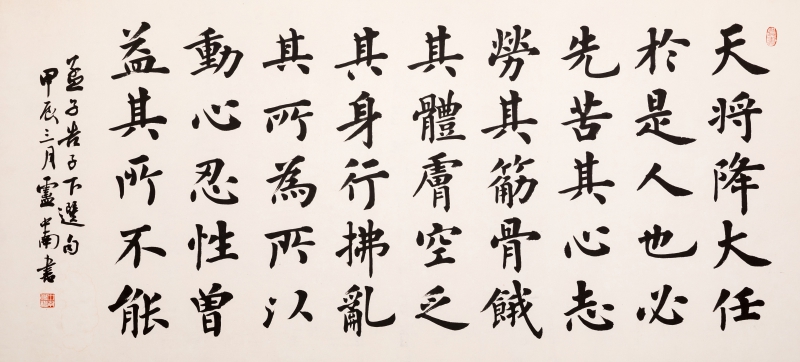 天将降大任
於是人也必
先苦其心志
勞其筋骨餓
其體膚空乏
其身行拂亂
其所為所以
動心忍性曾
益其所不能
孟子告子下選句
甲辰三月盧中南書